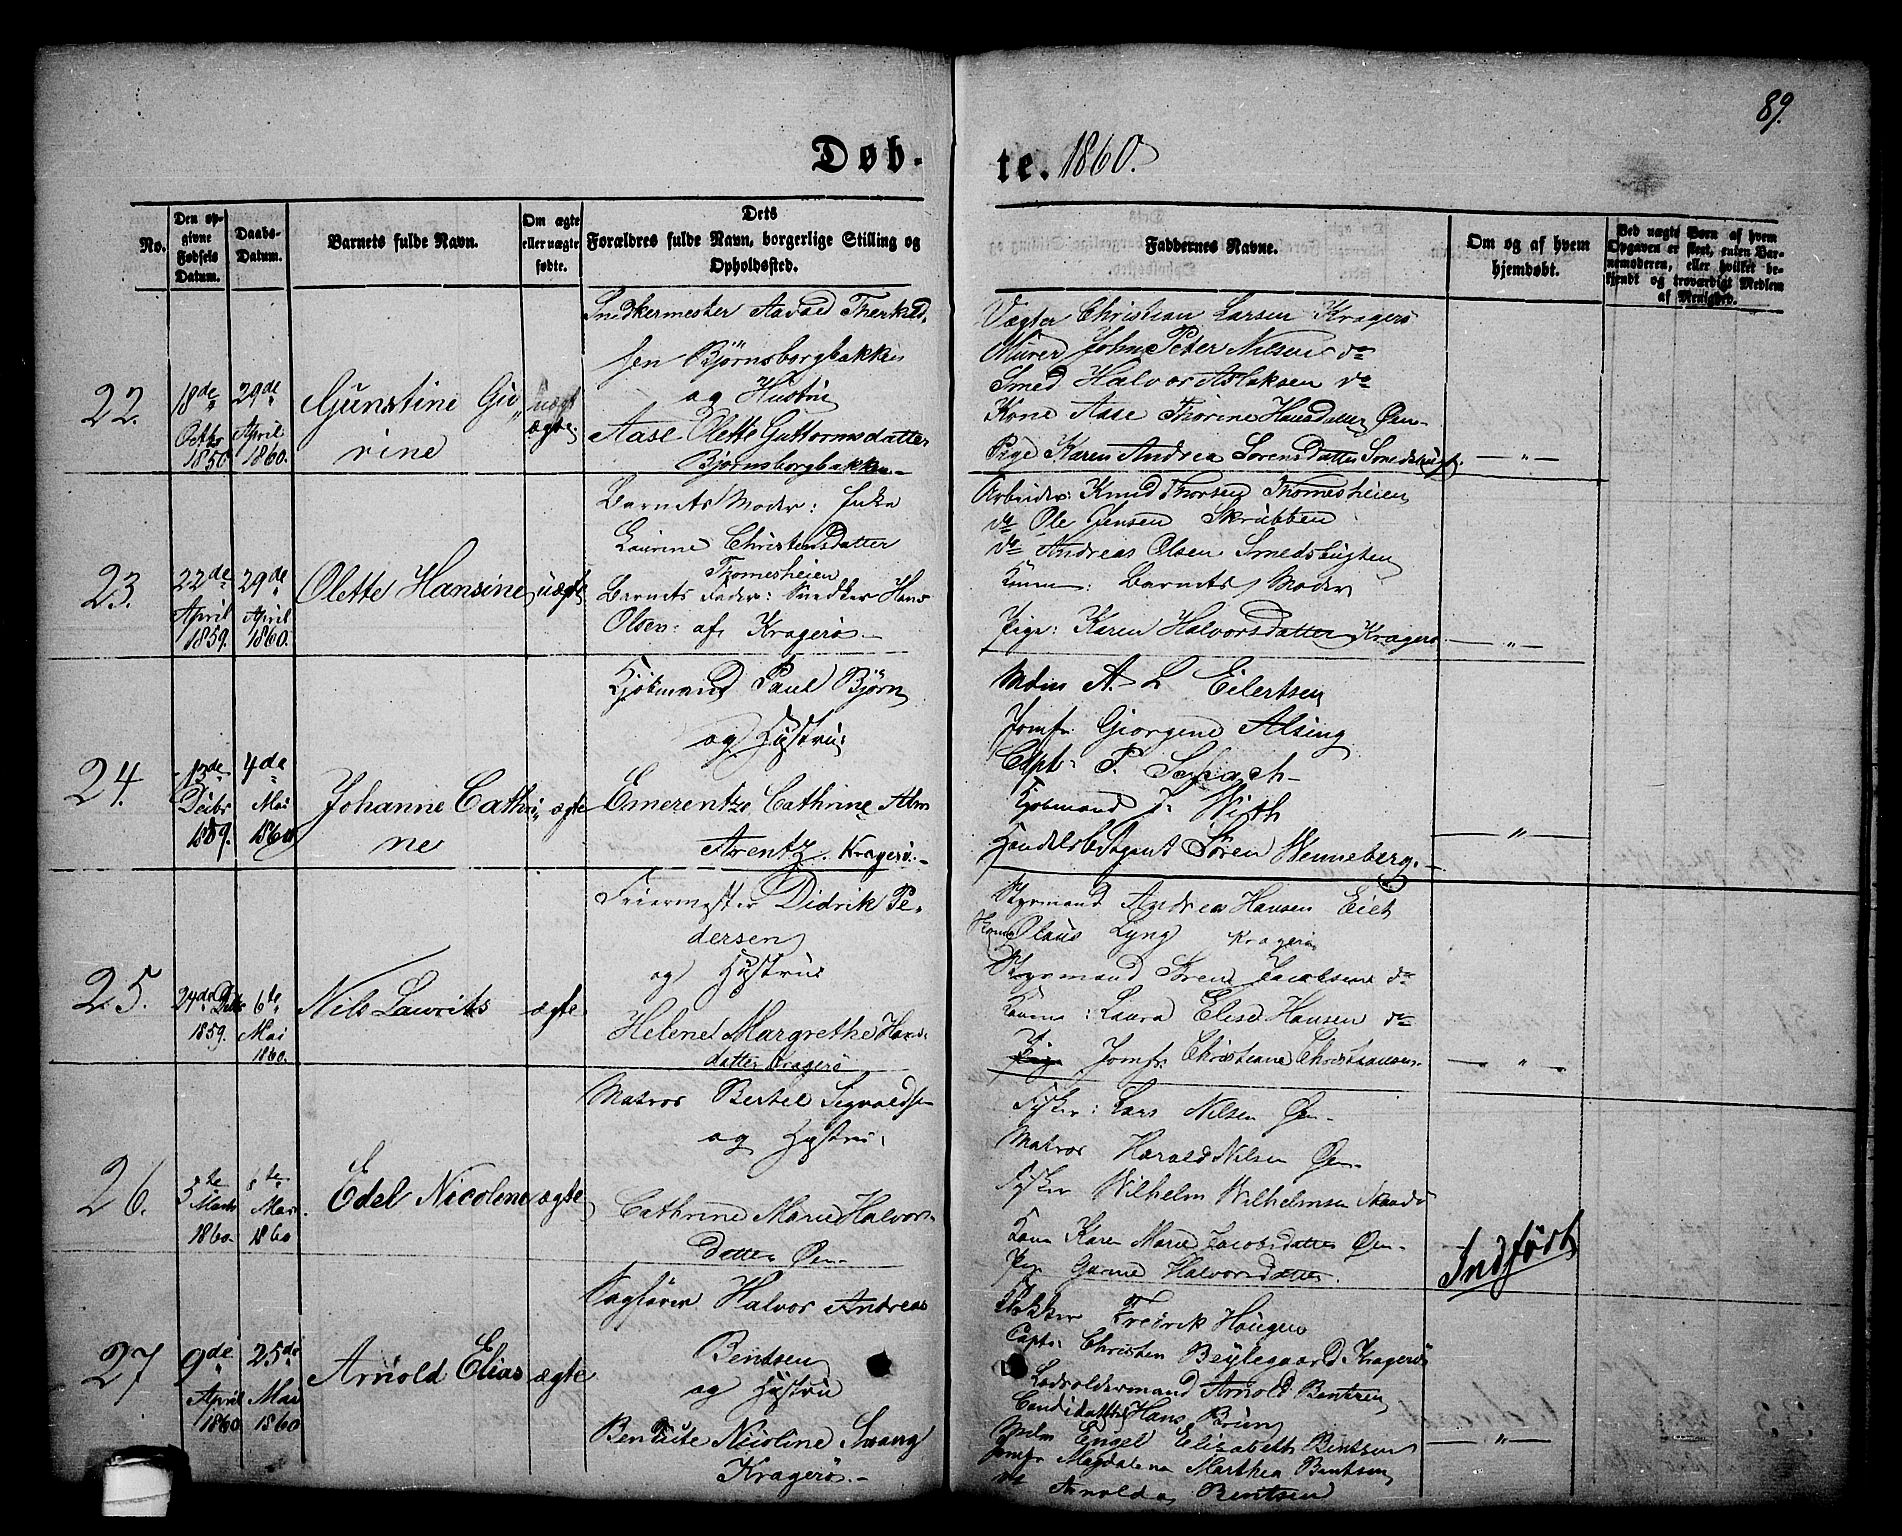 89.
Døb-
te. 1860.
No.
Den op-
givne
Fødsels
Datum.
Daabs-
Datum.
Barnets fulde Navn.
Om ægte
eller uægte
fødte.
Dets
Forældres fulde Navn, borgerlige Stilling og
Opholdssted.
Faddernes Navne.
Om og af hvem
hjemdøbt.
Ved uægte Børn af hvem
Opgaven er skeet, enten Bar-
nemoderen, eller hvilket be-
kjendt og troværdigt Medlem
af Menighed.
22.
18de
Octbr
1850
29de
April
1860.
Gunstine
rine
uægt
ægte
Snedkermester Aavald Therkild-
sen Bjørnsborgbakken
og Hustru
Aase Olette Guttormsdatter
Bjørnsborgbakken
Vægter Christian Larsen Kragerø
Murer John Peter Nilsen do
Smed Halvor Aslaksen do
Kone Aase Thorine Hansdatter Øen
Pige Karen Andrea Sørensdatter Smedsbugt.
— " —
23.
22de
April
1859.
29de
April
1860.
Olette Hansine
uægte
Barnets Moder: Inka
Laurine Christensdatter
Thomesheien
Barnets Fader: Snedker Hans
Olsen: af Kragerø
Arbeider: Knud Thorsen Thomesheien
do Ole Jensen Skrubben
do Andreas Olsen Smedsbugten
Konen: Barnets Moder
Pige: Karen Halvorsdatter Kragerø
— " —
24.
13de
Decbr
1859.
4de
Mai
1860
Johanne Cathri-
ne
ægte
Kjøbmand Paul Bjørn
og Hustru:
Emerentze Cathrine
Arentz. Kragerø.
Mdm A. L Eilertsen
Jomfr Giorgine Alsing
Capt. P. Schach
Kjøbmand J. Wirth
Handelsbetjent Søren Wenneberg.
— " —
25.
24de Decbr
1859.
6te
Mai
1860.
Nils Laurits
ægte
Feiermester Didrik Pe-
dersen
og Hustru
Helene Margrethe Hans-
datter Kragerø
Styrmand Andrea Hansen Eiet
Olaus Lyng Kragerø
Styrmand Søren Jacobsen do
Konen: Laura Elise Hansen do
Jomfr. Christiane Christiansen
— " —
26.
5te
Marts
1860.
6te
Mai
1860
Edel Nicoline
ægte
Matros Bertel Sigvaldsen
og Hustru:
Cathrine Marie Halvors-
datter Øen
Fisker: Lars Nilsen Øen
Matros Harald Nilsen Øen
Fisker Wilhelm Wilhelmsen
Kone Karen Marie Jacobsdatter Øen
Pige Gunne Halvorsdatter.
Indført
27
9de
April
1860
25de
Mai
1860
Arnold Elias
ægte
Sagfører Halvor Andreas
Bentsen
og Hustru
Nicoline
Kragerø.
Fredrik Hougen
Capt. Christen Beylegaard Kragerø
Lodsoldermand Arnold Bentzen
Candidatten Hans Brun
Mdm Engel Elizabeth Bentsen
Jomfr Magdalena Marthea Bentsen
do Arnolda Bentsen
— " —